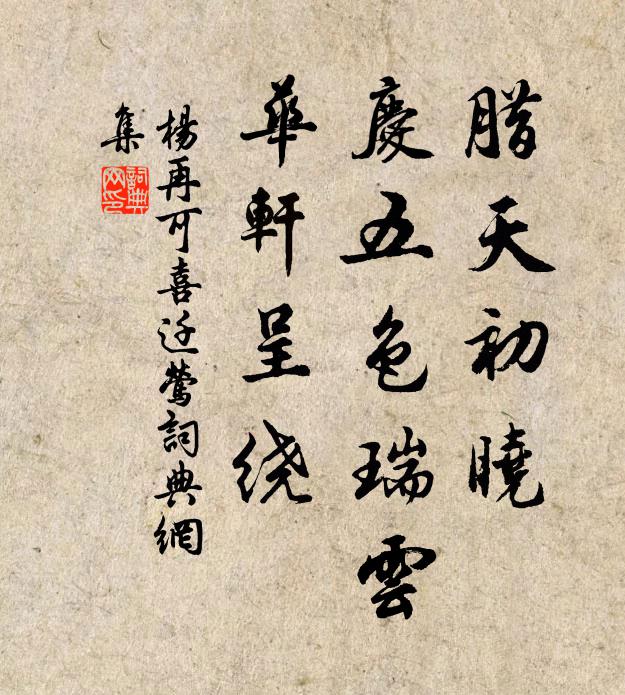 腊天初曉
慶五色瑞雲
華軒呈绕
楊再可喜迁鶯詞典網
集
詞典
网印